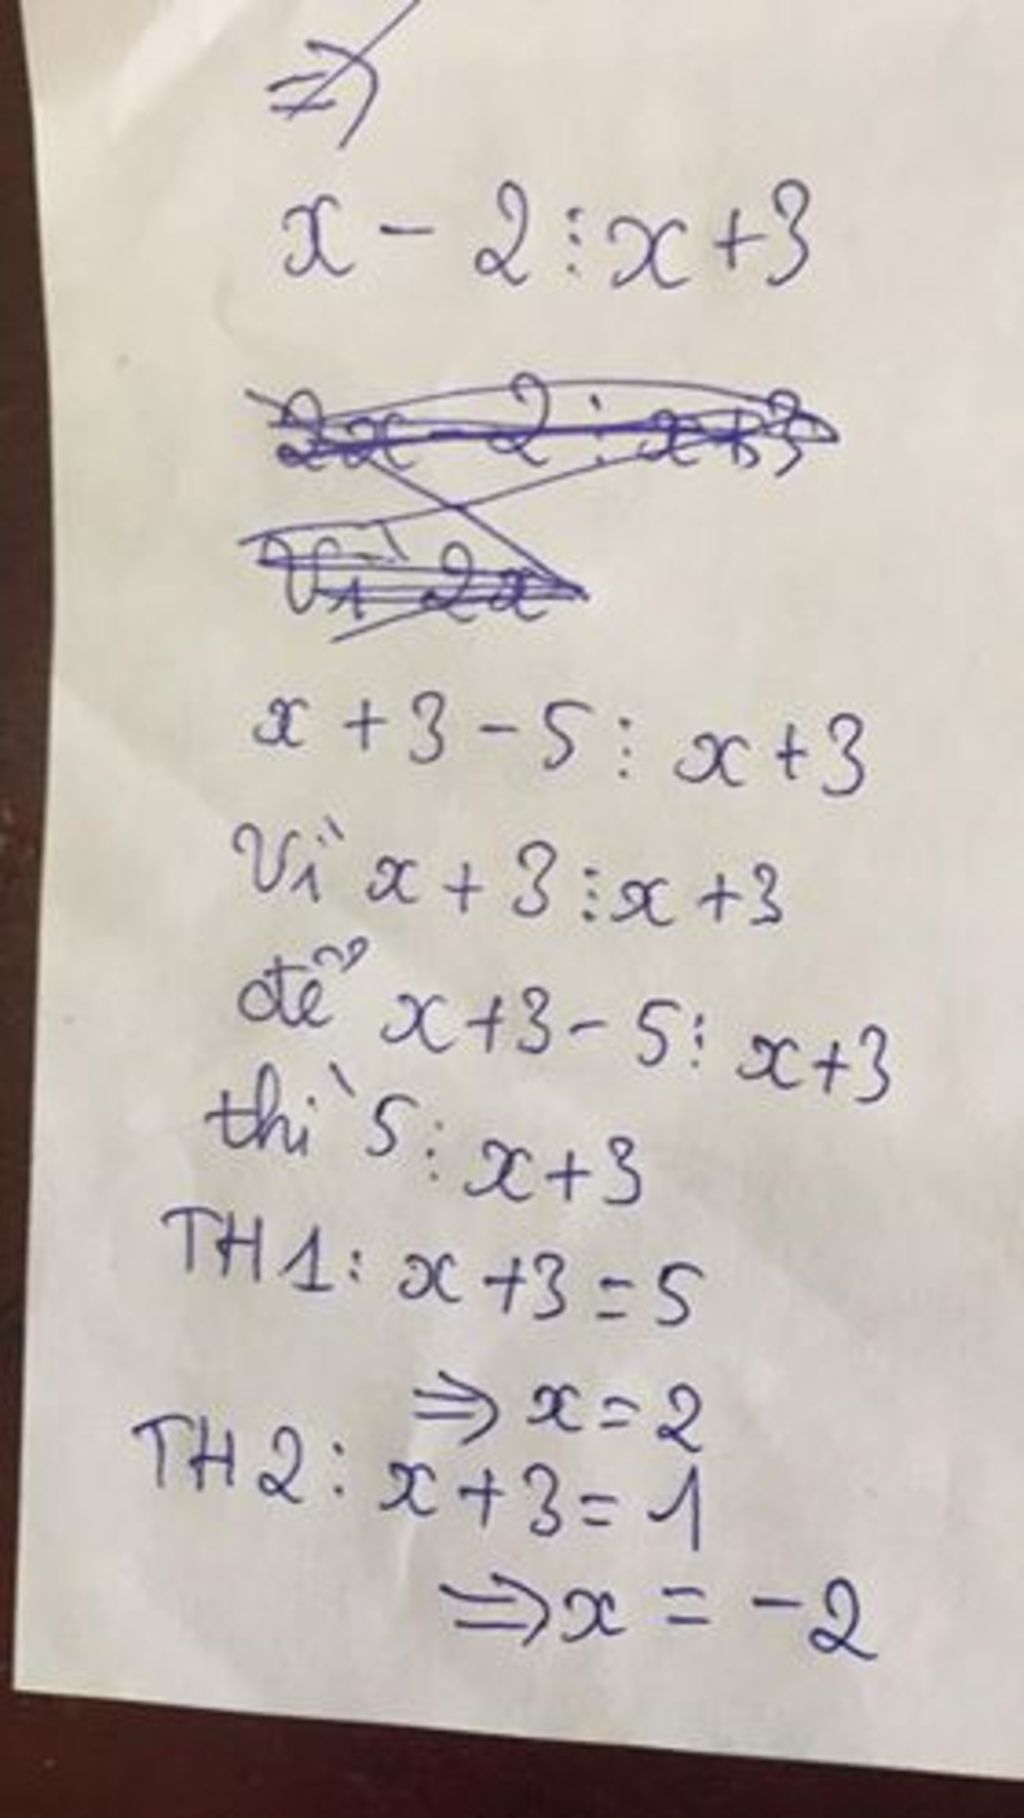 ⇒
x - 2 ⋮ x + 3
x + 3 - 5 ⋮ x + 3
Vì x + 3 ⋮ x + 3
để x + 3 - 5 ⋮ x + 3
thì 5 ⋮ x + 3
TH1: x + 3 = 5
⇒ x = 2
TH2: x + 3 = 1
⇒ x = -2